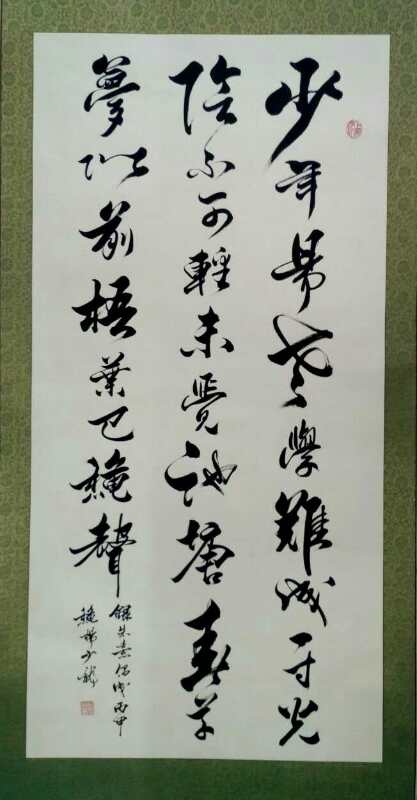 少年易老學難成一寸光
陰不可輕未覺池塘春草
夢階前梧葉已穐聲
錄朱熹偶成丙申
穐少龍